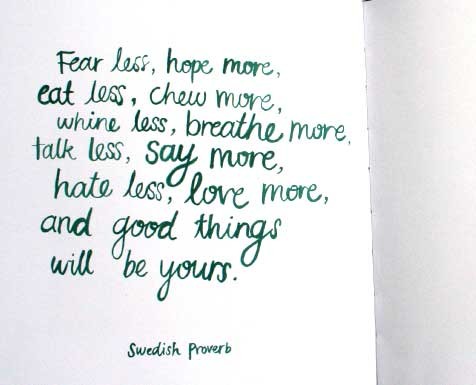 Fear less, hope more,
eat less, chew more,
whine less, breathe more,
talk less, say more,
hate less, love more,
and good things
will be yours.
Swedish Proverb